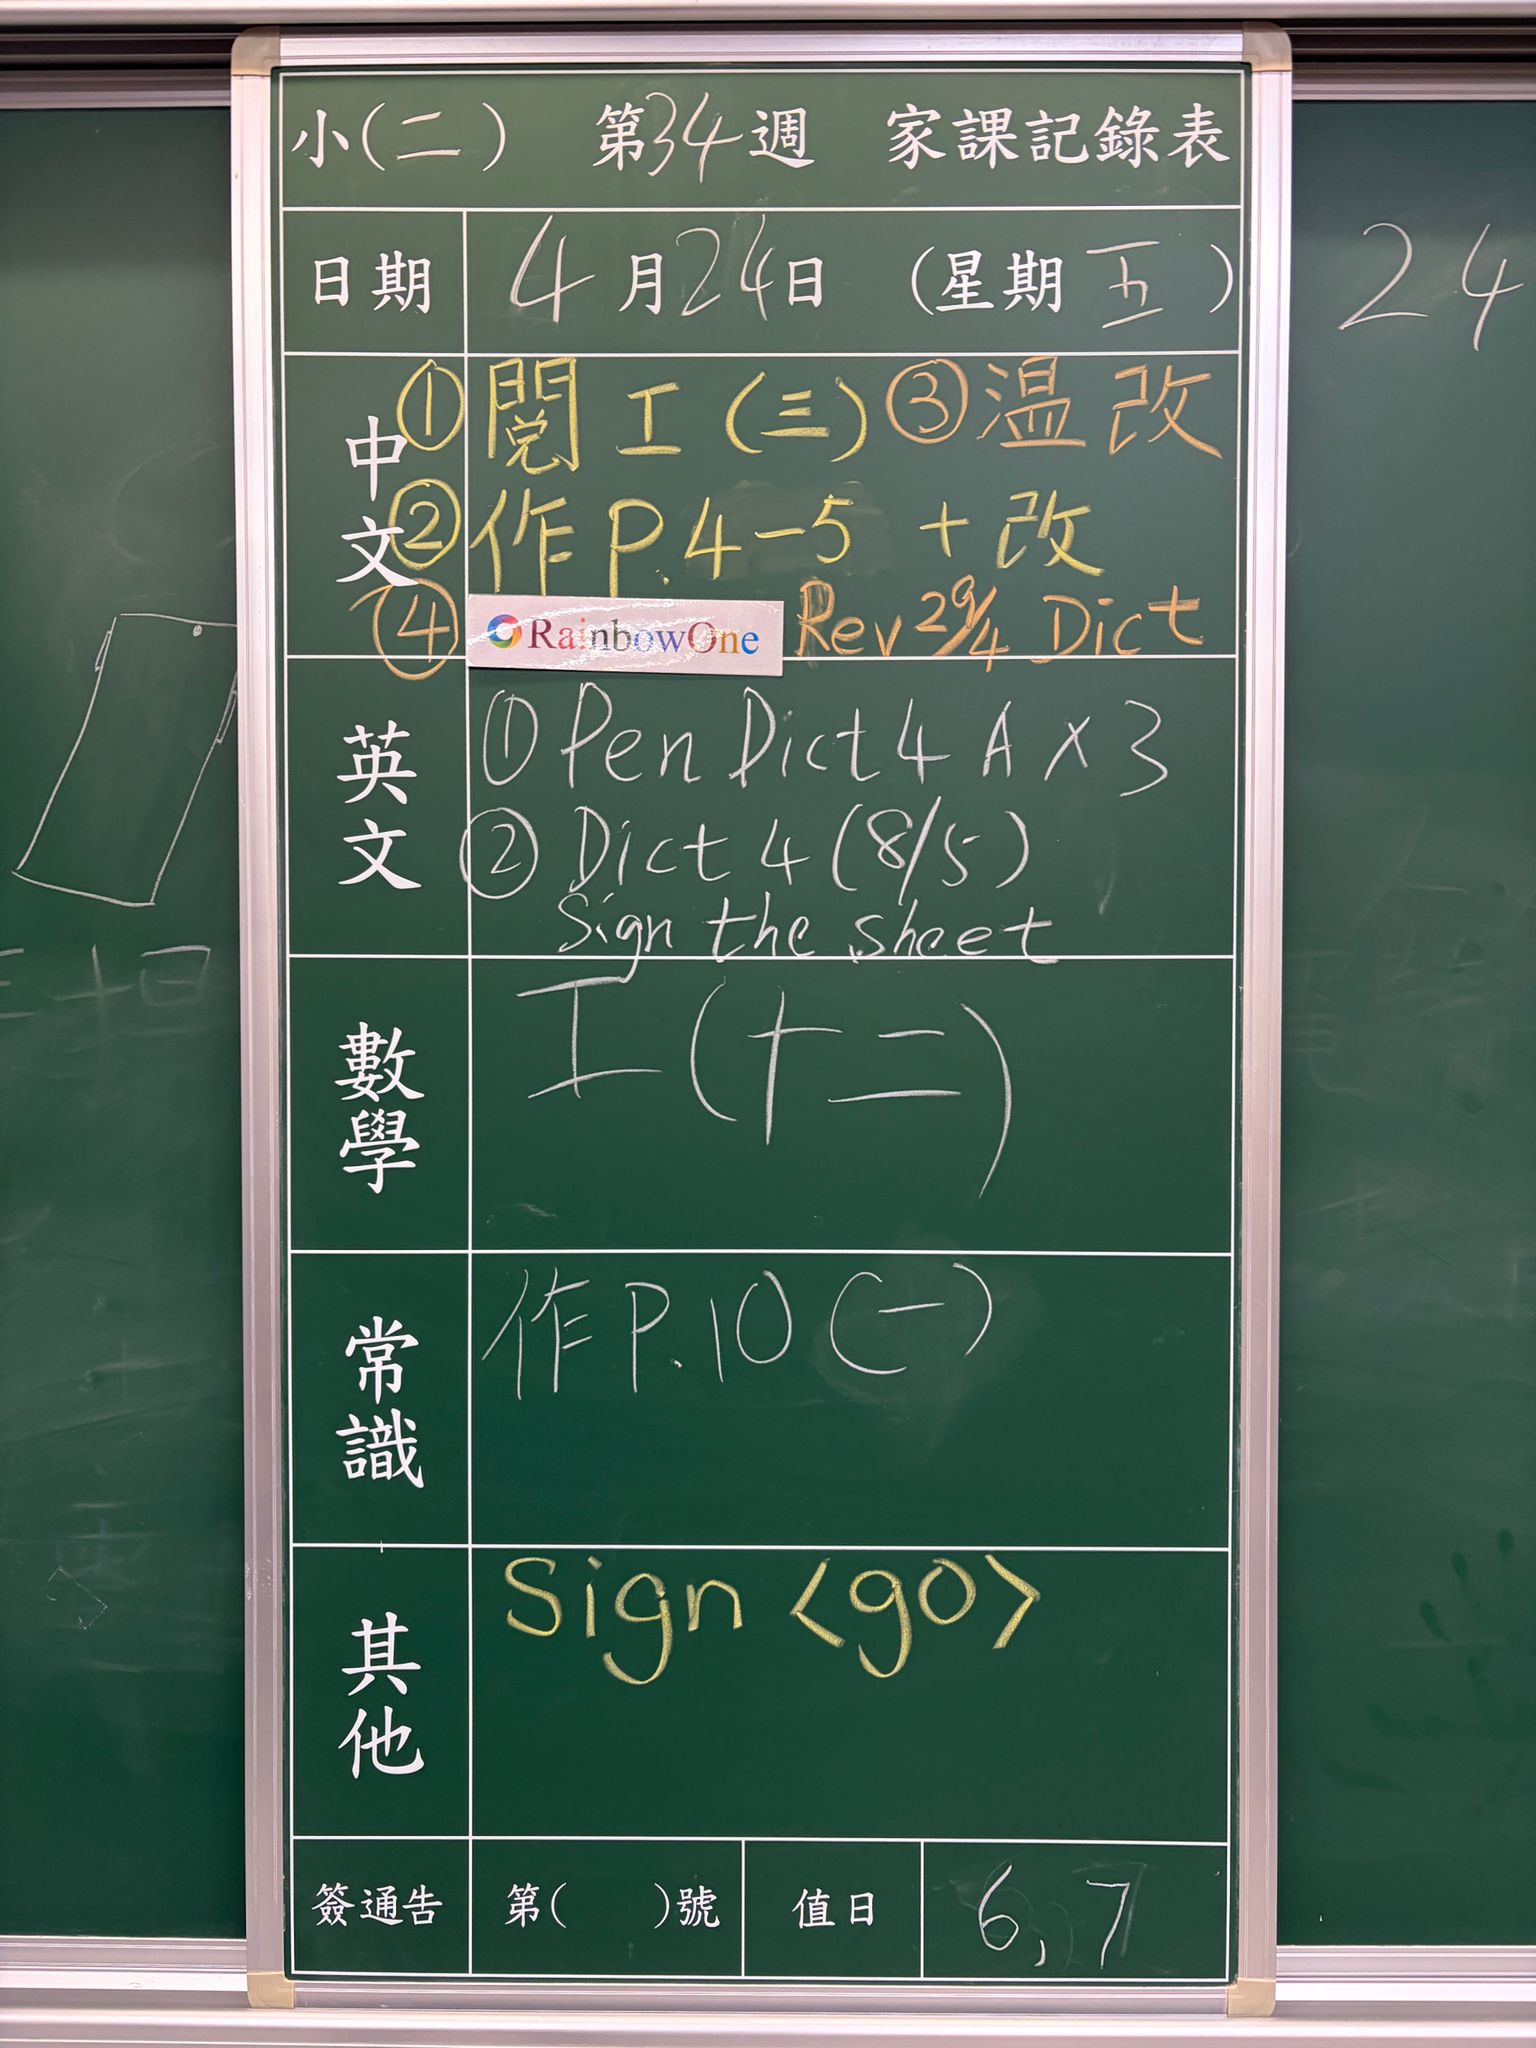 小(二) 第34週 家課記錄表
日期 4月24日 (星期五)
24
中文
①閱工(三) ③温改
②作P.4-5 + 改
④ RainbowOne Rev 29/4 Dict
英文
①Pen Dict 4 A x 3
② Dict 4 (8/5)
Sign the sheet
數學
工(十二)
常識
作P.10(一)
其他
Sign <go>
簽通告 第( )號 值日 6, 7